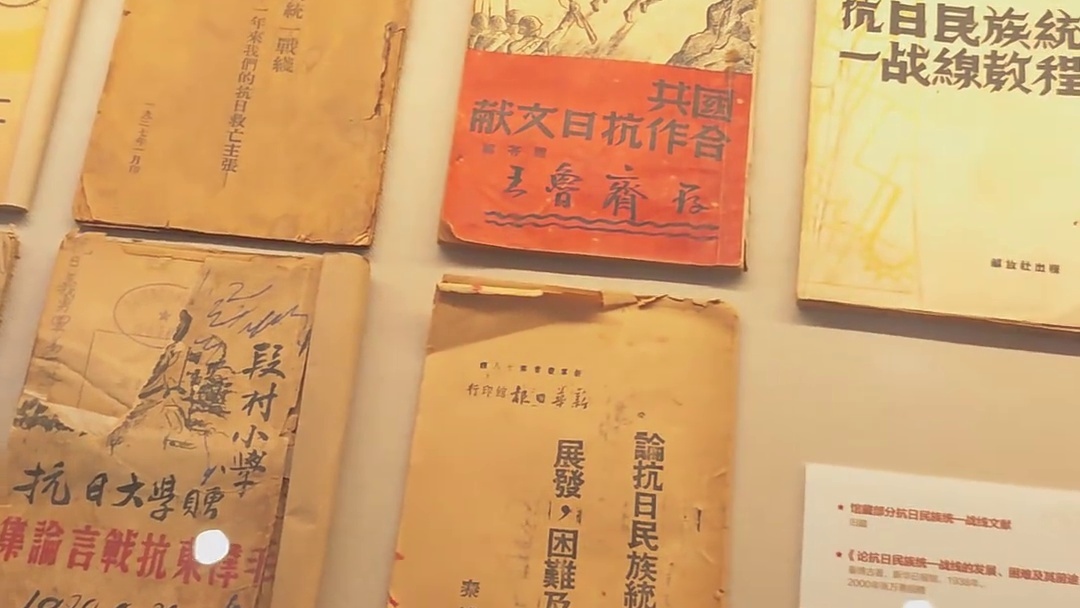 統一戰綫
一年來我們的抗日救亡主張
一九三七年一月印
共國
献文日抗作合
王魯齊存
抗日民族統
一战線教程
解放社出版
段村小學
抗日大學贈
集論言戰抗東澤毛
行印館報日華新
論抗日民族統
展發，困難及
秦
馆藏部分抗日民族统一战线文献
旧藏
《论抗日民族统一战线的发展、困难及其前途
秦博古著，新华日报馆，1938年。